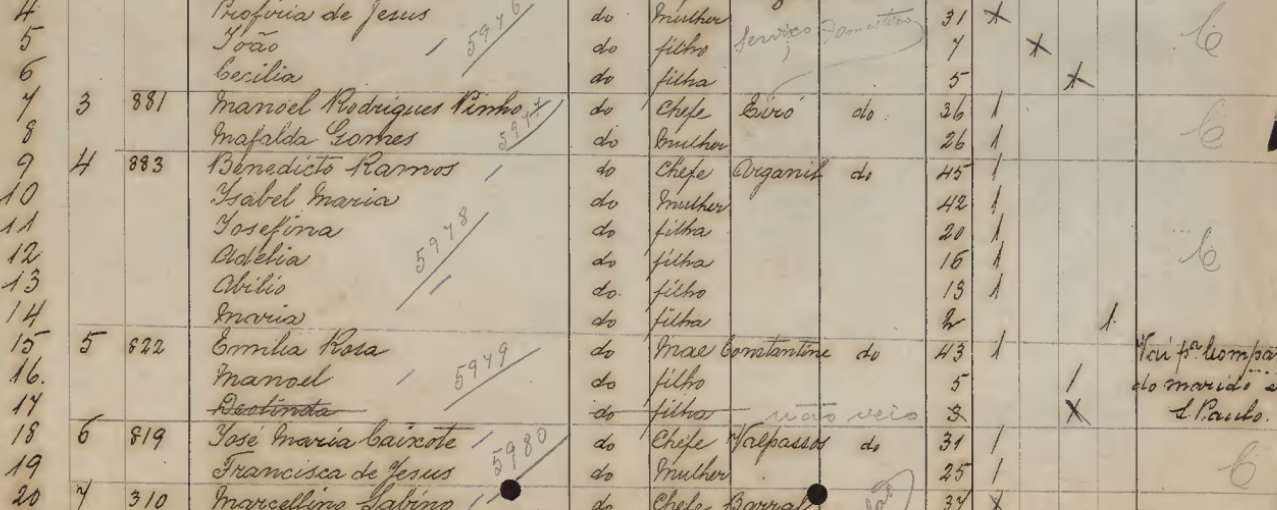 4 Profiria de Jesus 5976 do Mulher Serviço Domestico 31 x
5 João do filho 7 x
6 Cecilia do filha 5 x
7 3 881 Manoel Rodrigues Pinho 5977 do Chefe Eiró do 36 1
8 Mafalda Gomes do Mulher 26 1
9 4 883 Benedicto Ramos do Chefe Arganil do 45 1
10 Isabel Maria do Mulher 42 1
11 Josefina 5978 do filha 20 1
12 Adelia do filha 16 1
13 Abilio do filho 13 1
14 Maria do filha 2 1
15 5 822 Emilia Rosa 5979 do Mae Constantine do 43 1 Vai pª Compª
16. Manoel do filho 5 1 do marido e
17 Deolinda do filha não veio 3 x S. Paulo.
18 6 819 José Maria Caixote 5980 do Chefe Valpassos do 31 1
19 Francisca de Jesus do Mulher 25 1
20 7 310 Marcellino Sabino do Chefe Barral 37 x